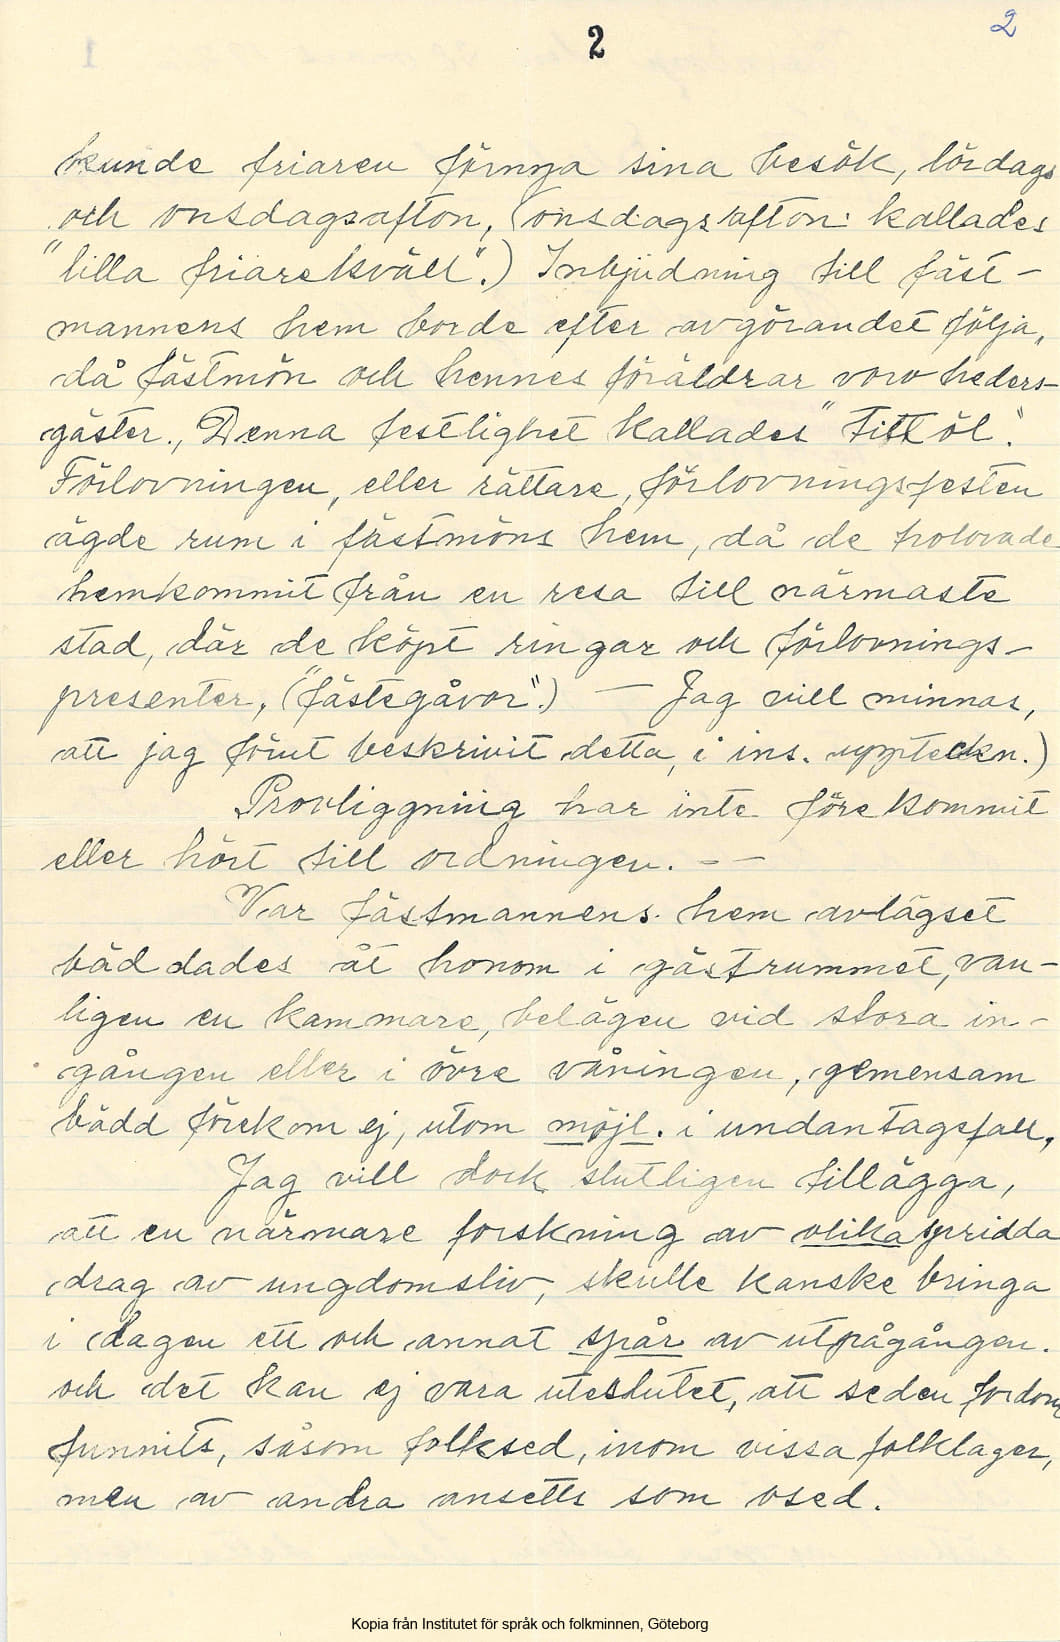 2
2
kunde friaren förnya sina besök, lördags
och onsdagsafton, (onsdagsafton: kallades
"lilla friarekväll".) Inbjudning till fäst-
mannens hem borde efter avgörandet följa,
då fästmön och hennes föräldrar voro heders-
gäster., Denna festlighet kallades "Tittöl".
Förlovningen, eller rättare, förlovningsfesten
ägde rum i fästmöns hem, då de trolovade
hemkommit från en resa till närmaste
stad, där de köpt ringar och förlovnings-
presenter, ("fästegåvor".) — Jag vill minnas,
att jag förut beskrivit detta, i ins. uppteckn.)
Provliggning har inte förekommit
eller hört till ordningen. - —
Var fästmannens hem avlägset
bäddades åt honom i gästrummet, van-
ligen en kammare, belägen vid stora in-
gången eller i övre våningen, gemensam
bädd förekom ej, utom möjl. i undantagsfall,
Jag vill dock slutligen tillägga,
att en närmare forskning av olika spridda
drag av ungdomsliv, skulle kanske bringa
i dagen ett och annat spår av utpågången.
och det kan ej vara uteslutet, att seden fordom
funnits, såsom folksed, inom vissa folklager,
men av andra ansetts som osed.
Kopia från Institutet för språk och folkminnen, Göteborg